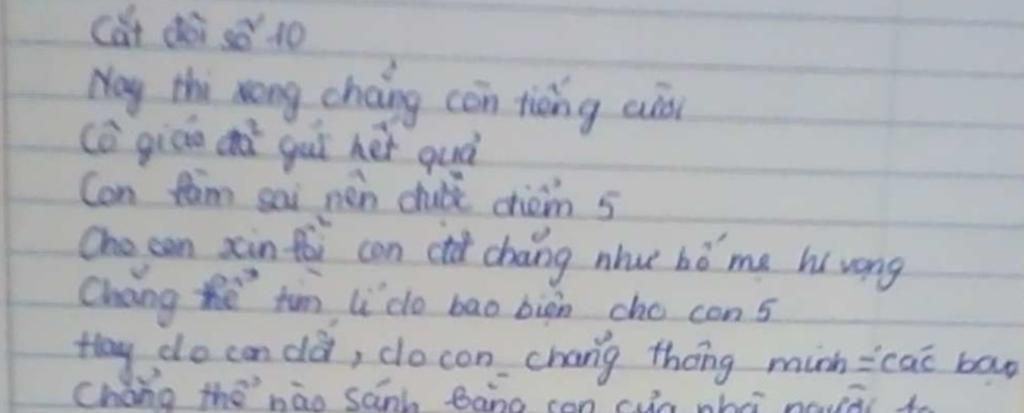 Cắt đôi số 10
Nay thi xong chẳng còn tiếng cười
Cô giáo đã gửi kết quả
Con làm sai nên được điểm 5
Cho con xin lỗi con đã chẳng như bố mẹ hi vọng
Chẳng thể tìm lí do bao biện cho con 5
Hay do con dở, do con chẳng thông minh = các bạn
Chẳng thể nào sánh bằng con của nhà người ta